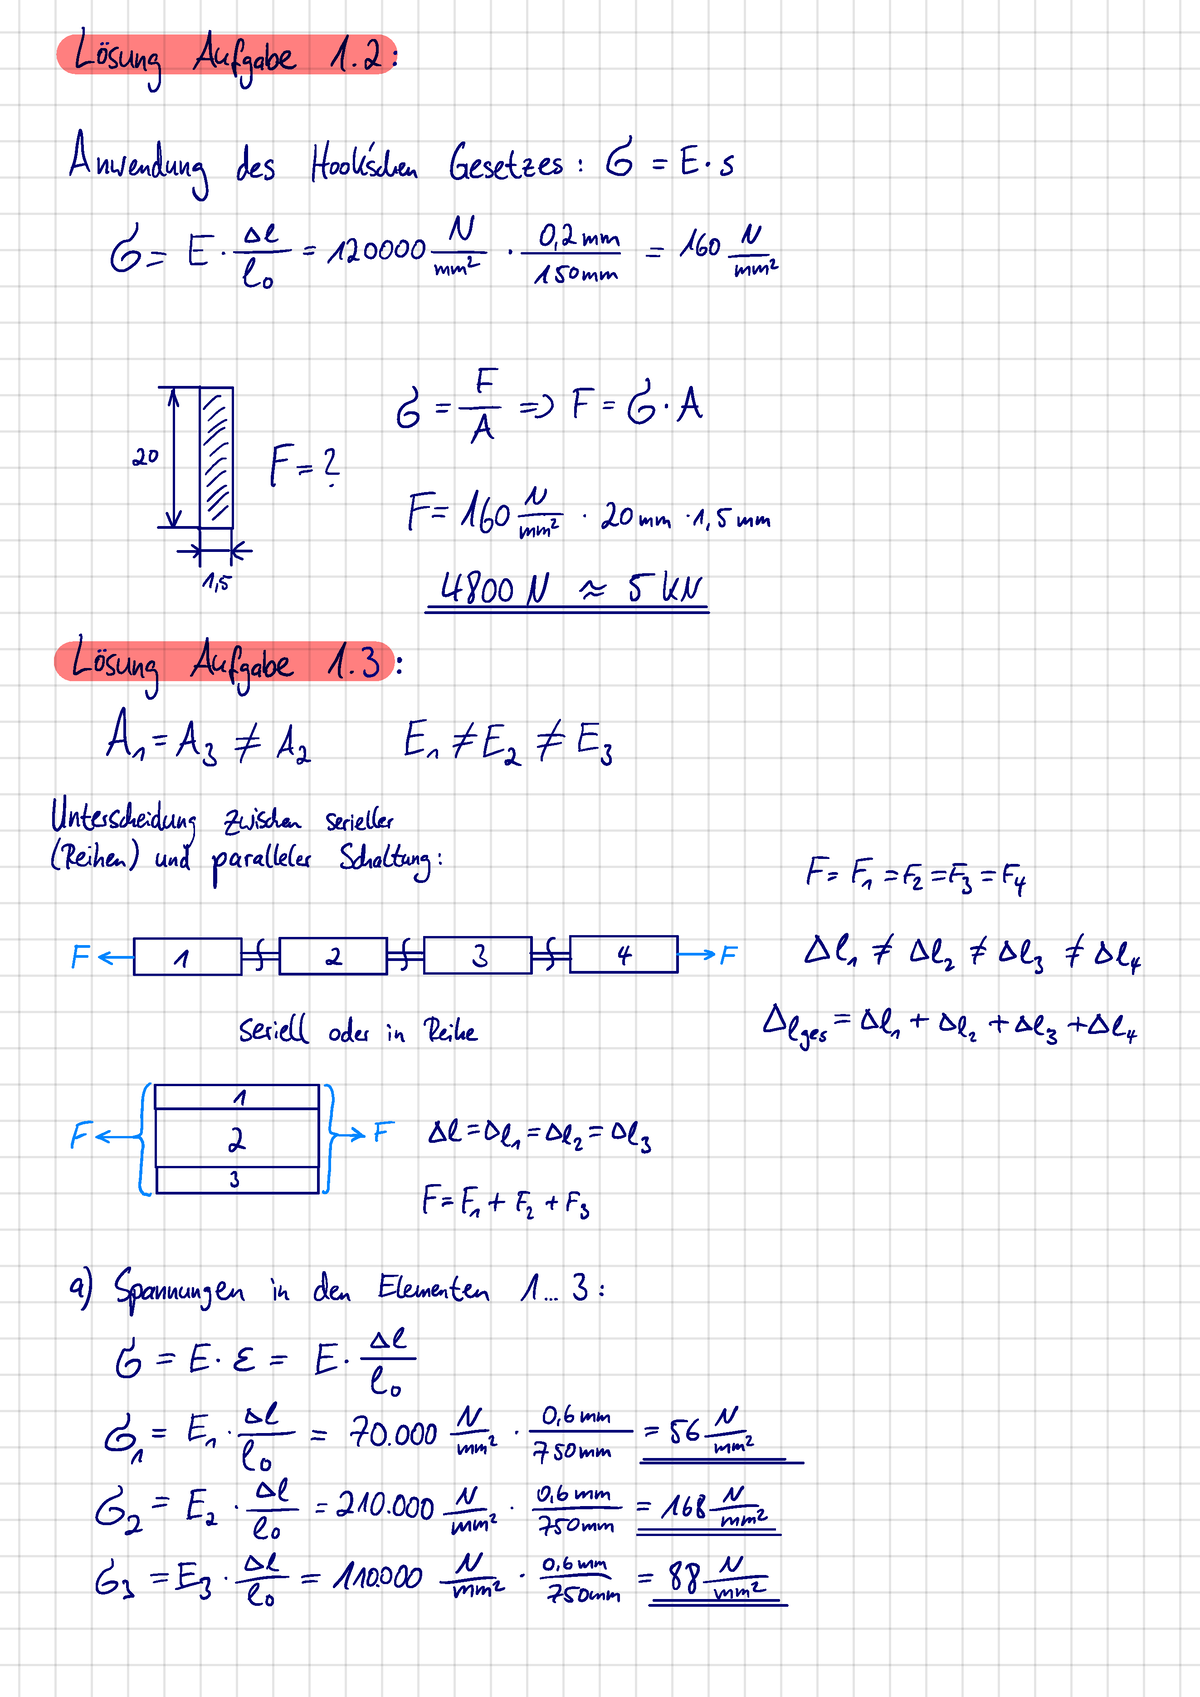 Lösung Aufgabe 1.2:
Anwendung des Hook'schen Gesetzes: σ = E · s
σ = E · Δl/l₀ = 120000 N/mm² · 0,2mm/150mm = 160 N/mm²
σ = F/A => F = σ · A
20
F = ?
F = 160 N/mm² · 20mm · 1,5mm
1,5
4800 N ≈ 5 kN
Lösung Aufgabe 1.3:
A₁ = A₃ ≠ A₂ E₁ ≠ E₂ ≠ E₃
Unterscheidung zwischen serieller
(Reihen) und paralleler Schaltung:
F = F₁ = F₂ = F₃ = F₄
F 1 2 3 4 F
Δl₁ ≠ Δl₂ ≠ Δl₃ ≠ Δl₄
seriell oder in Reihe
Δlges = Δl₁ + Δl₂ + Δl₃ + Δl₄
1
F 2 F
3
Δl = Δl₁ = Δl₂ = Δl₃
F = F₁ + F₂ + F₃
a) Spannungen in den Elementen 1...3:
σ = E · ε = E · Δl/l₀
σ₁ = E₁ · Δl/l₀ = 70.000 N/mm² · 0,6mm/750mm = 56 N/mm²
σ₂ = E₂ · Δl/l₀ = 210.000 N/mm² · 0,6mm/750mm = 168 N/mm²
σ₃ = E₃ · Δl/l₀ = 110.000 N/mm² · 0,6mm/750mm = 88 N/mm²